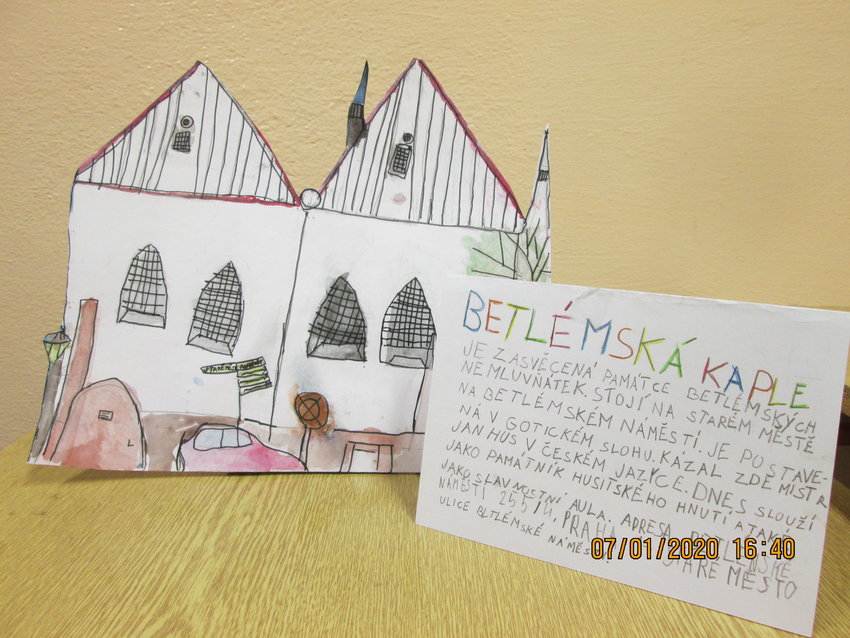 BETLÉMSKÁ KAPLE
JE ZASVĚCENÁ PAMÁTCE BETLÉMSKÝCH
NEMLUVŇÁTEK. STOJÍ NA STARÉM MĚSTĚ
NA BETLÉMSKÉM NÁMĚSTÍ. JE POSTAVE-
NÁ V GOTICKÉM SLOHU. KÁZAL ZDE MISTR
JAN HUS V ČESKÉM JAZYCE. DNES SLOUŽÍ
JAKO PAMÁTNÍK HUSITSKÉHO HNUTÍ A TAKÉ
JAKO SLAVNOSTNÍ AULA. ADRESA
NÁMĚSTÍ 255/4, PRAHA STARÉ MĚSTO
ULICE BETLÉMSKÉ
07/01/2020 16:40